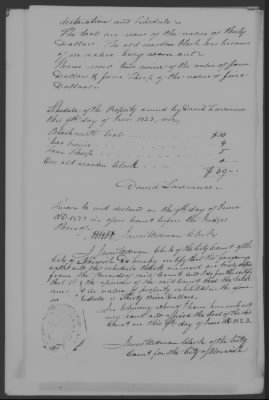 declaration and Schedule
The tools are now of the value of thirty
Dollars. The old wooden Clock has become
of no value being worn out
I have now two swine of the value of four
Dollars & four Sheep of the value of five
Dollars
Schedule of the Property owned by David Lawrence
this 9th day of June 1823, viz,
Blacksmith tools $30
two swine 4
four Sheep 5
One old wooden Clock 0
$39
David Lawrence
Sworn to and declared on the 9th day of June
AD. 1823 in open Court before the Judges
thereof.
James Stedman Clerk
I James Stedman Clerk of the City Court of the
City of Norwich Do hereby certify that the foregoing
oath and the schedule thereto annexed are truly copied
from the Records of said Court and I do further certify
that it is the opinion of the said Court that the total
amount in value of property exhibited in the
schedule is Thirty Nine Dollars.
In testimony whereof I have hereunto set
my hand and affixed the Seal of the said
Court on this 9th day of June AD. 1823.
James Stedman Clerk of the City
Court for the City of Norwich